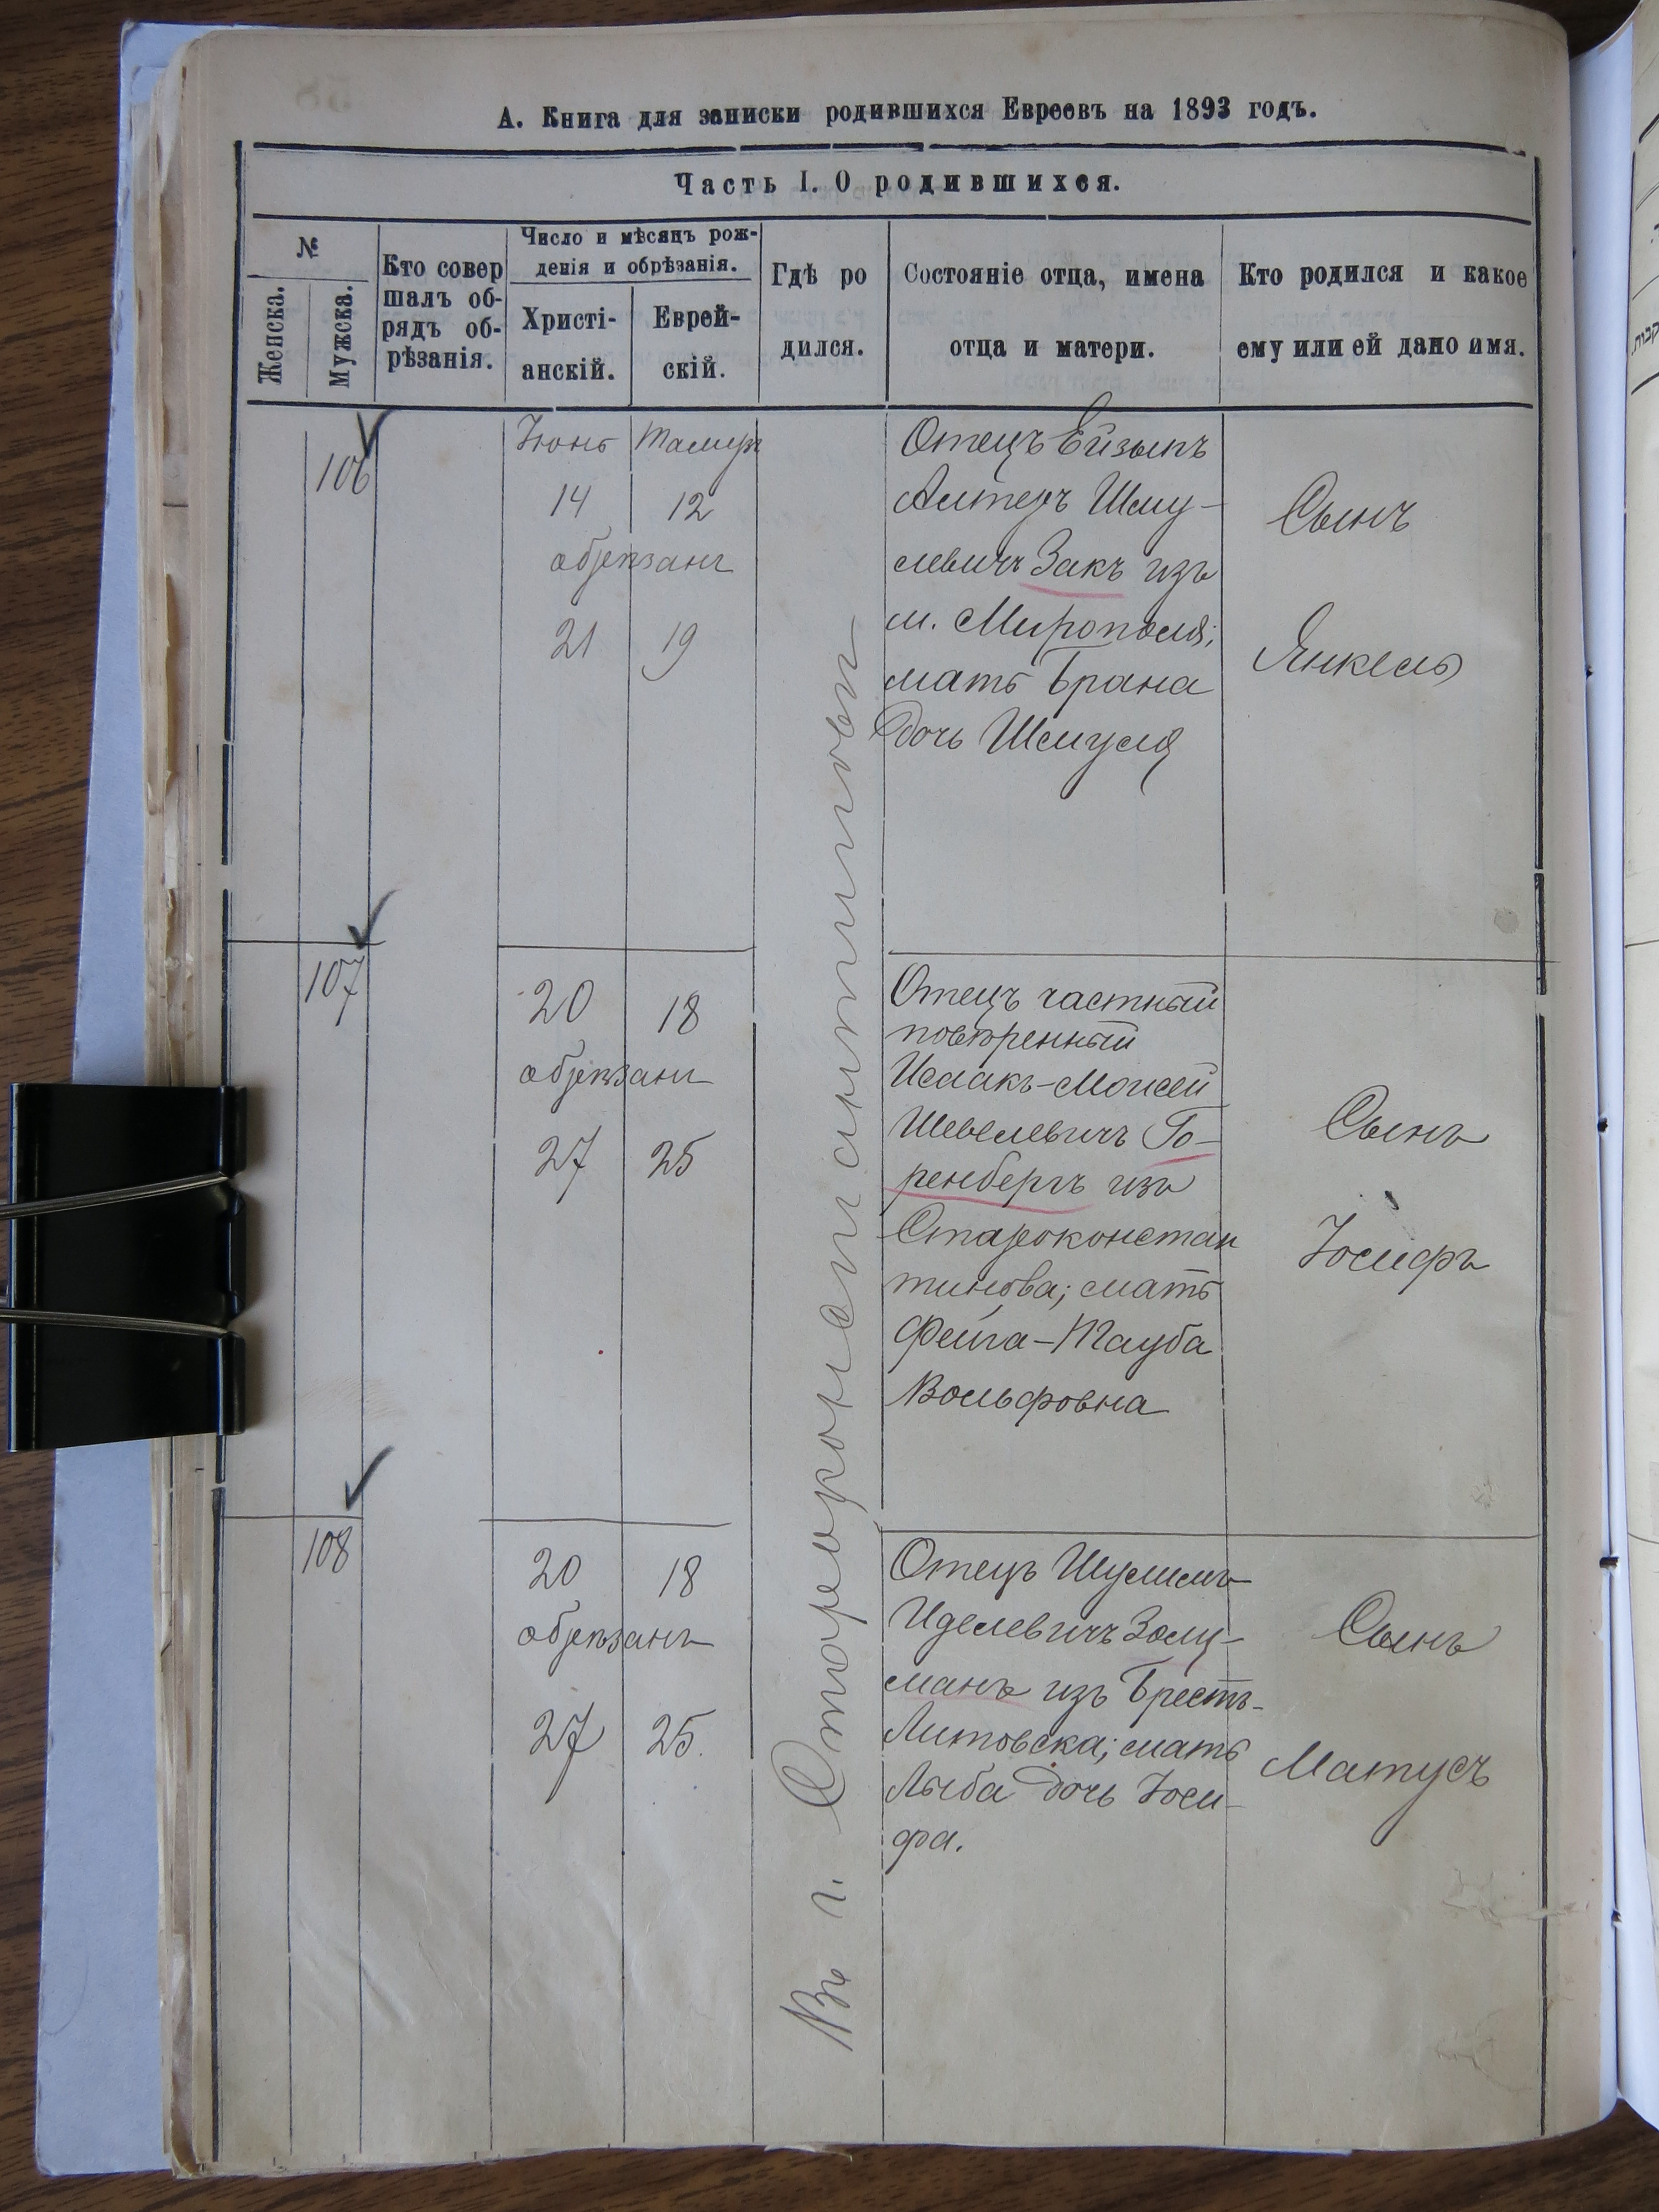 А. Книга для записки родившихся Евреевъ на 1893 годъ.
Часть I. О родившихся.
№
Женска.
Мужска.
Кто совер
шалъ об-
рядъ об-
рѣзанія.
Число и мѣсяцъ рож-
денія и обрѣзанія.
Христі-
анскій.
Еврей-
скій.
Гдѣ ро
дился.
Состояніе отца, имена
отца и матери.
Кто родился и какое
ему или ей дано имя.
106
Іюнь
Тамузъ
14
12
обрѣзанъ
21
19
Отецъ Ейзыкъ
Алтеръ Шму-
левичъ Закъ изъ
м. Мирополя;
мать Брана
дочь Шмуля
Сынъ
Янкель
Въ г. Староконстантиновѣ
107
20
18
обрѣзанъ
27
25
Отецъ частный
повѣренный
Исаакъ-Моисей
Шевелевичъ Го-
ренбергъ изъ
Староконстан
тинова; мать
Фейга-Тауба
Вольфовна
Сынъ
Іосифъ
108
20
18
обрѣзанъ
27
25.
Отецъ Шулимъ
Иделевичъ
манъ изъ Брестъ-
Литовска; мать
дочь Іоси-
фа.
Сынъ
Матусъ